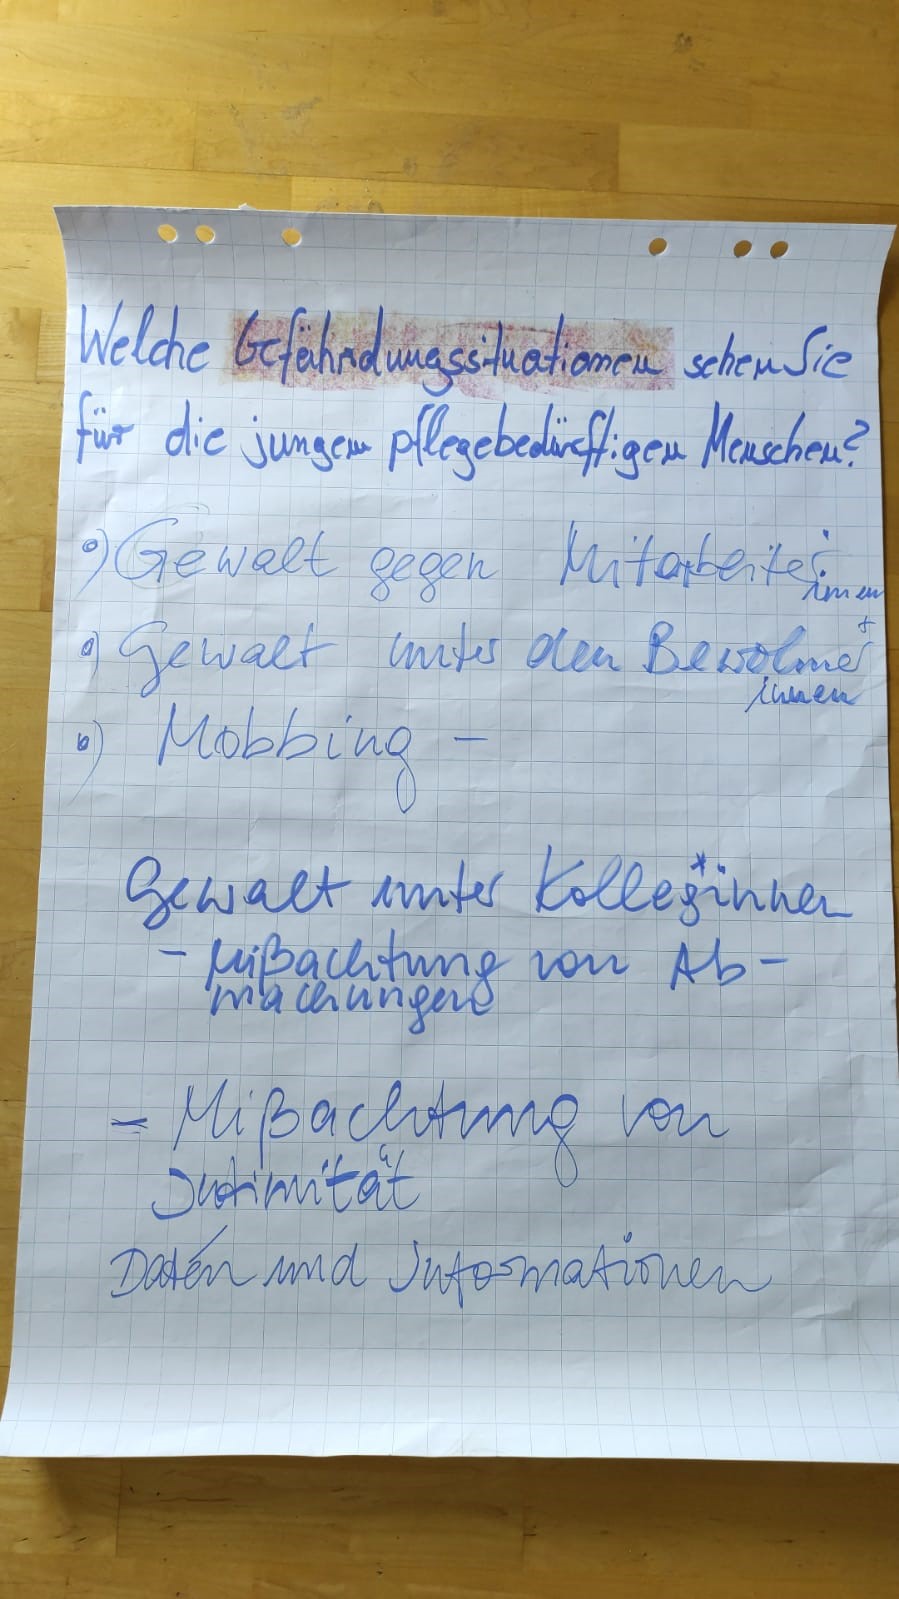 Welche Gefährdungssituationen sehen Sie
für die jungen pflegebedürftigen Menschen?
o) Gewalt gegen Mitarbeiter:
innen
o) Gewalt unter den Bewohner*
innen
o) Mobbing -
Gewalt unter Kolleg*innen
- Mißachtung von Ab-
machungen
- Mißachtung von
Intimität
Daten und Informationen